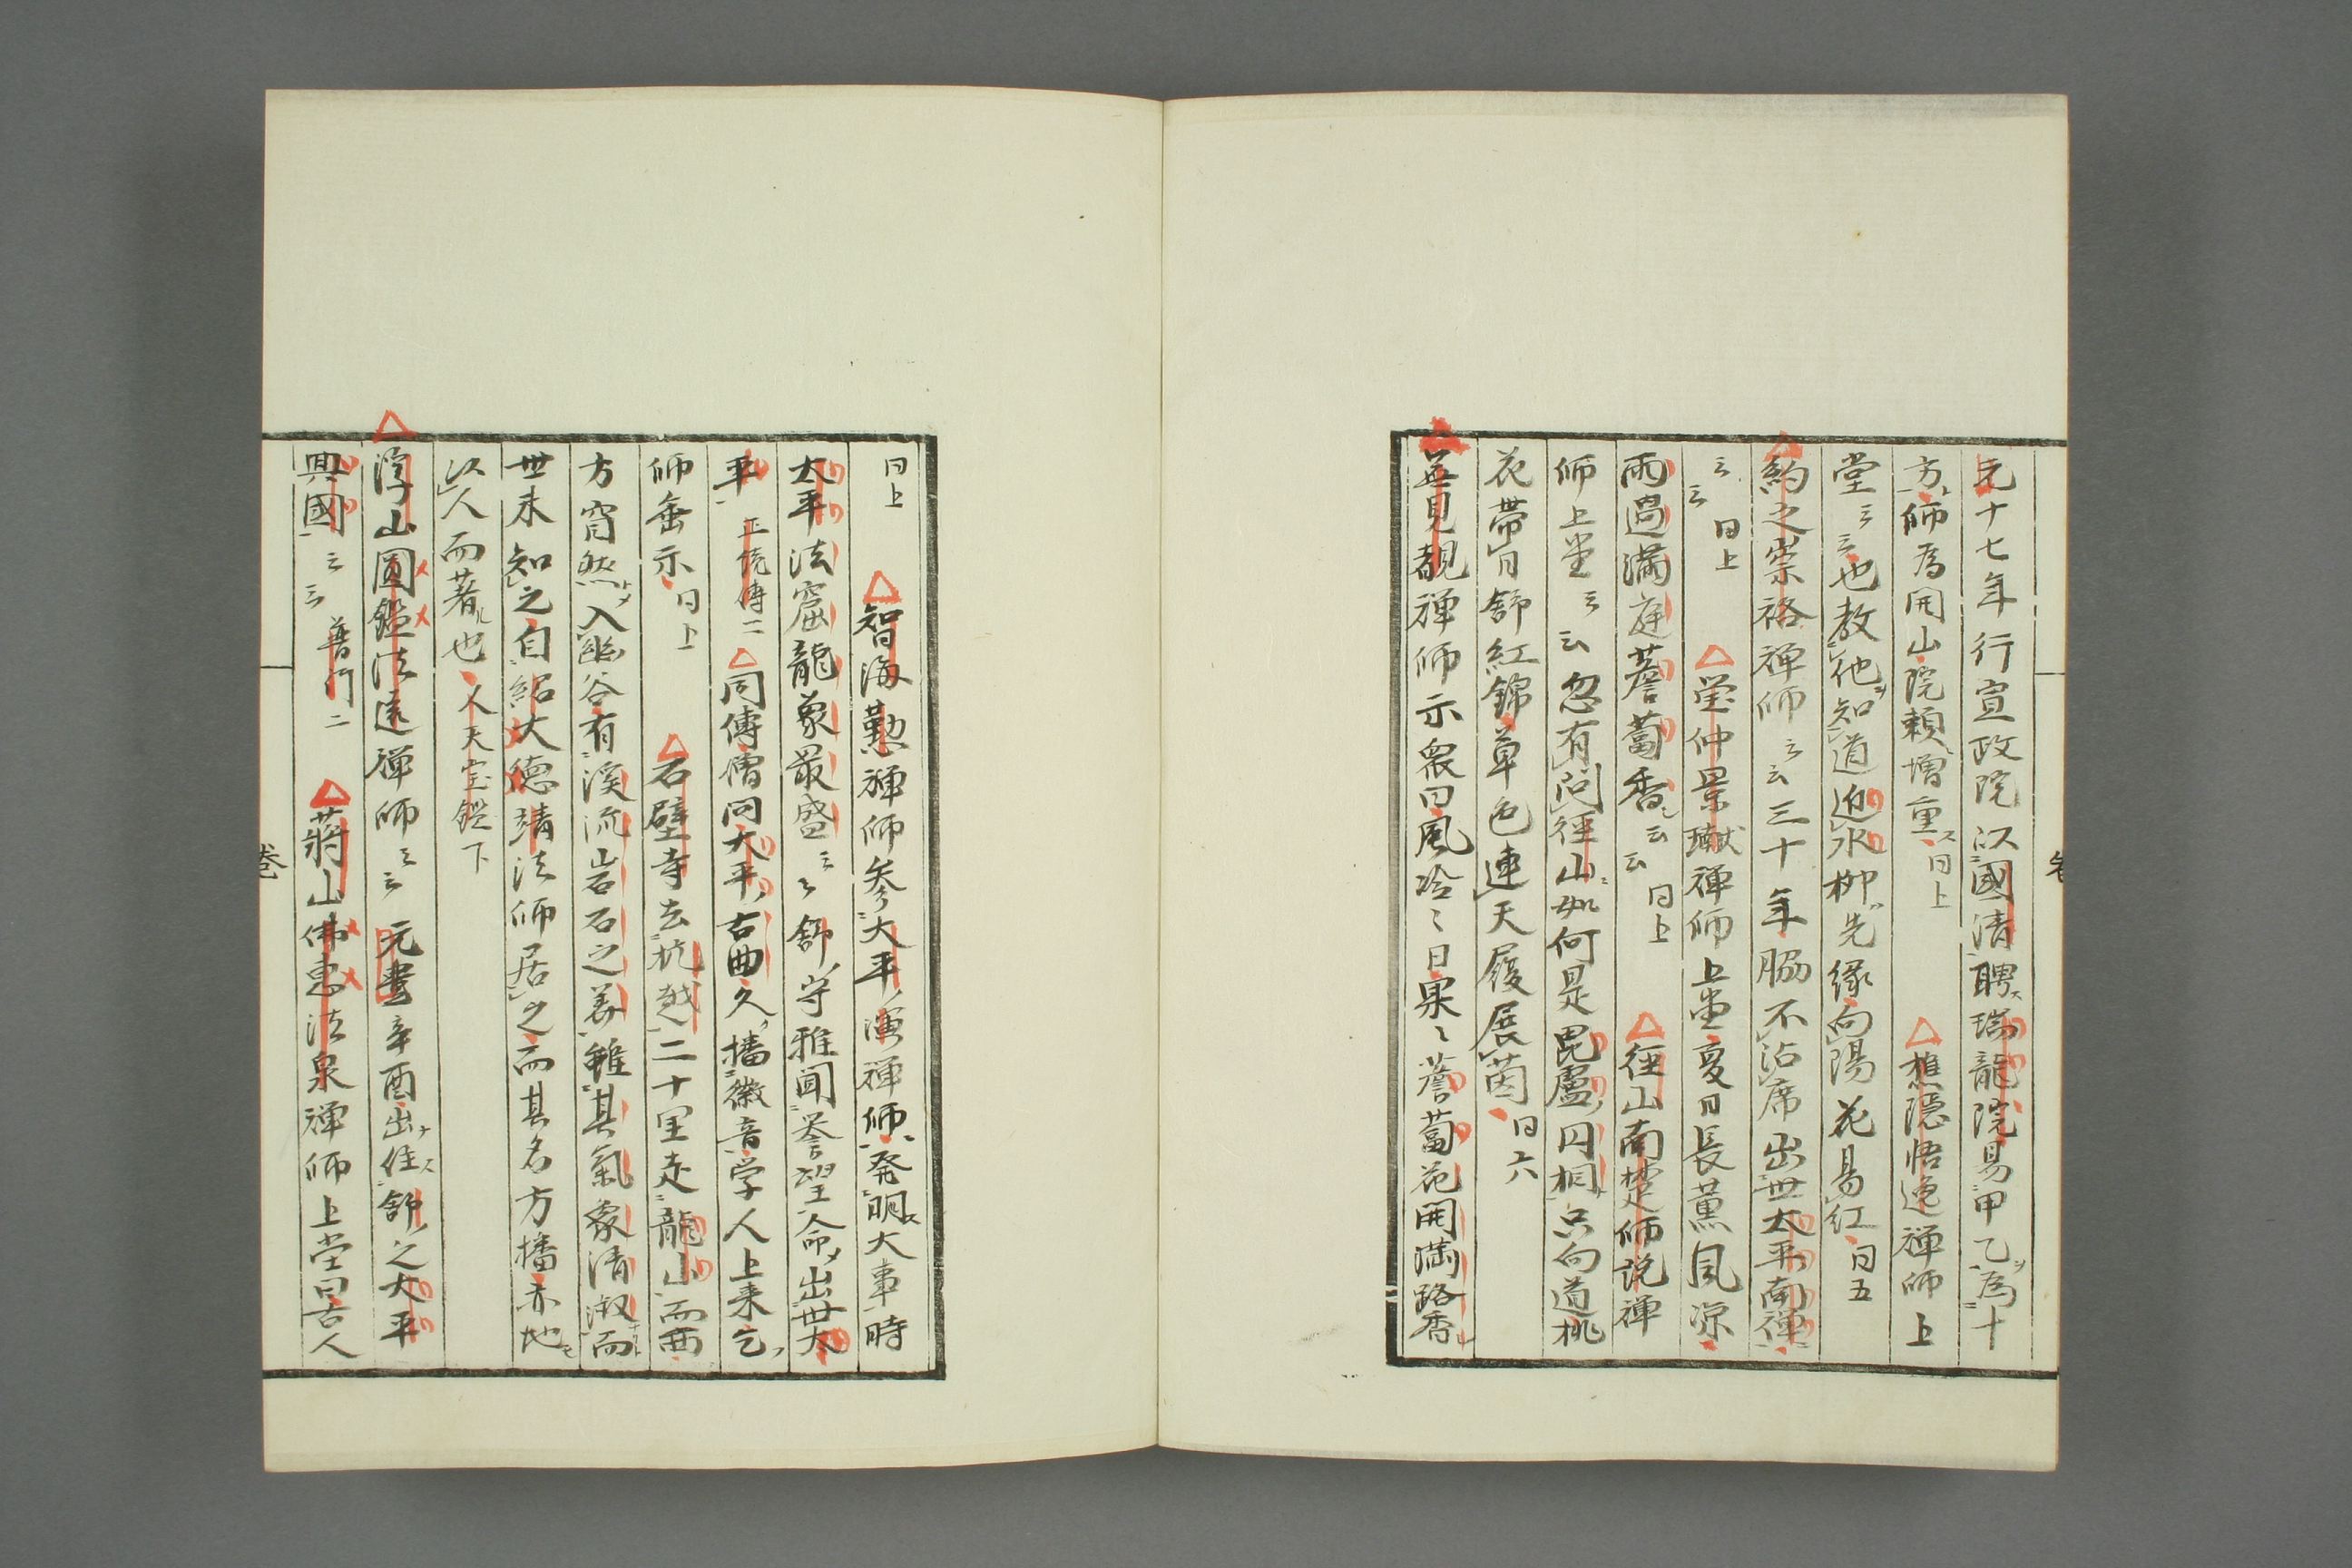 元十七年行宣政院以國清聘瑞龍院易甲乙為十
方師為開山院頼增重 同上 △樵隠悟逸禅師上
堂云云也教他知道近水柳先緑向陽花易紅 同五
約之崇裕禅師云云三十年脇不沾席出世太平南禅
云云 同上 △瑩仲景瓛禅師上堂夏日長薫風凉
雨過満庭薝蔔香云云 同上 △径山南楚師説禅
師上堂云云忽有問径山如何是毘盧円相只向道桃
花帯日舒紅錦草色連天履展茵 同六
△無見覩禅師示衆曰風冷々日杲々薝蔔花開満路香
同上 △智海懃禅師参大平演禅師発明大事時
太平法窟龍象最盛云云舒守雅聞誉望命出世太
平 正続傳二 △同傳僧問大平古曲久播徽音学人上来乞
師垂示 同上 △石壁寺去杭越二十里走龍山而西
方窅然入幽谷有渓流岩石之美雖其氣象清淑而
世未知之自紹大徳靖法師居之而其名方播亦地
以人而著也 人天宝鑑下
△浮山圓鑑法遠禅師云云元豊辛酉出住舒之太平
興國云云 普門二 △蒋山佛恵法泉禅師上堂曰古人
巻